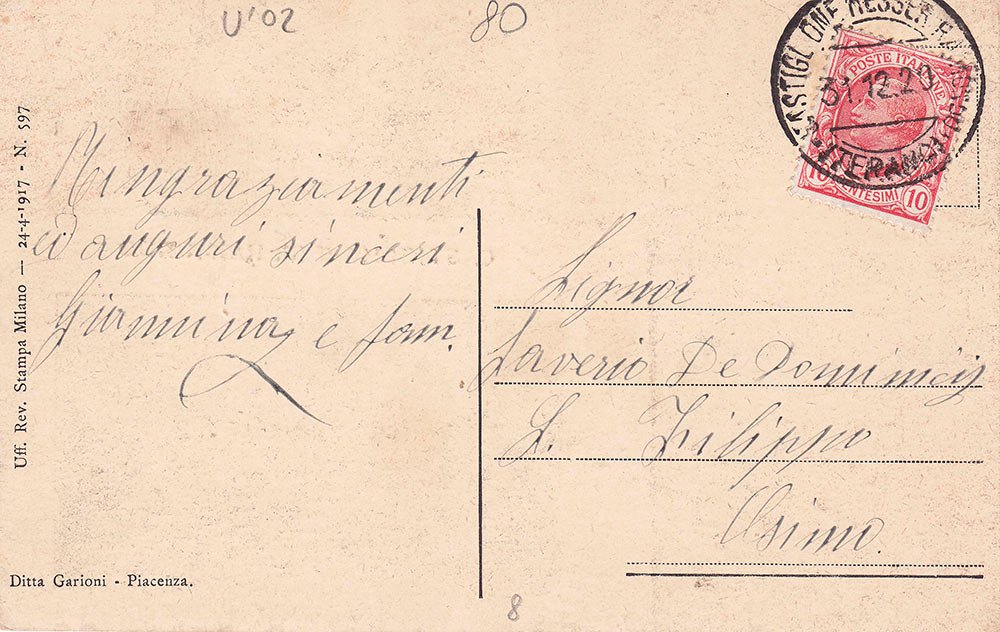 U'02
80
CASTIGLIONE MESSER RAIMONDO
31.12.29
(TERAMO)
POSTE ITALIANE
10 CENTESIMI 10
Uff. Rev. Stampa Milano — 24-4-1917 - N. 597
Ringraziamenti
ed auguri sinceri
e fam.
Signor
Saverio De Dominicis
S. Filippo
Osimo.
Ditta Garioni - Piacenza.
8